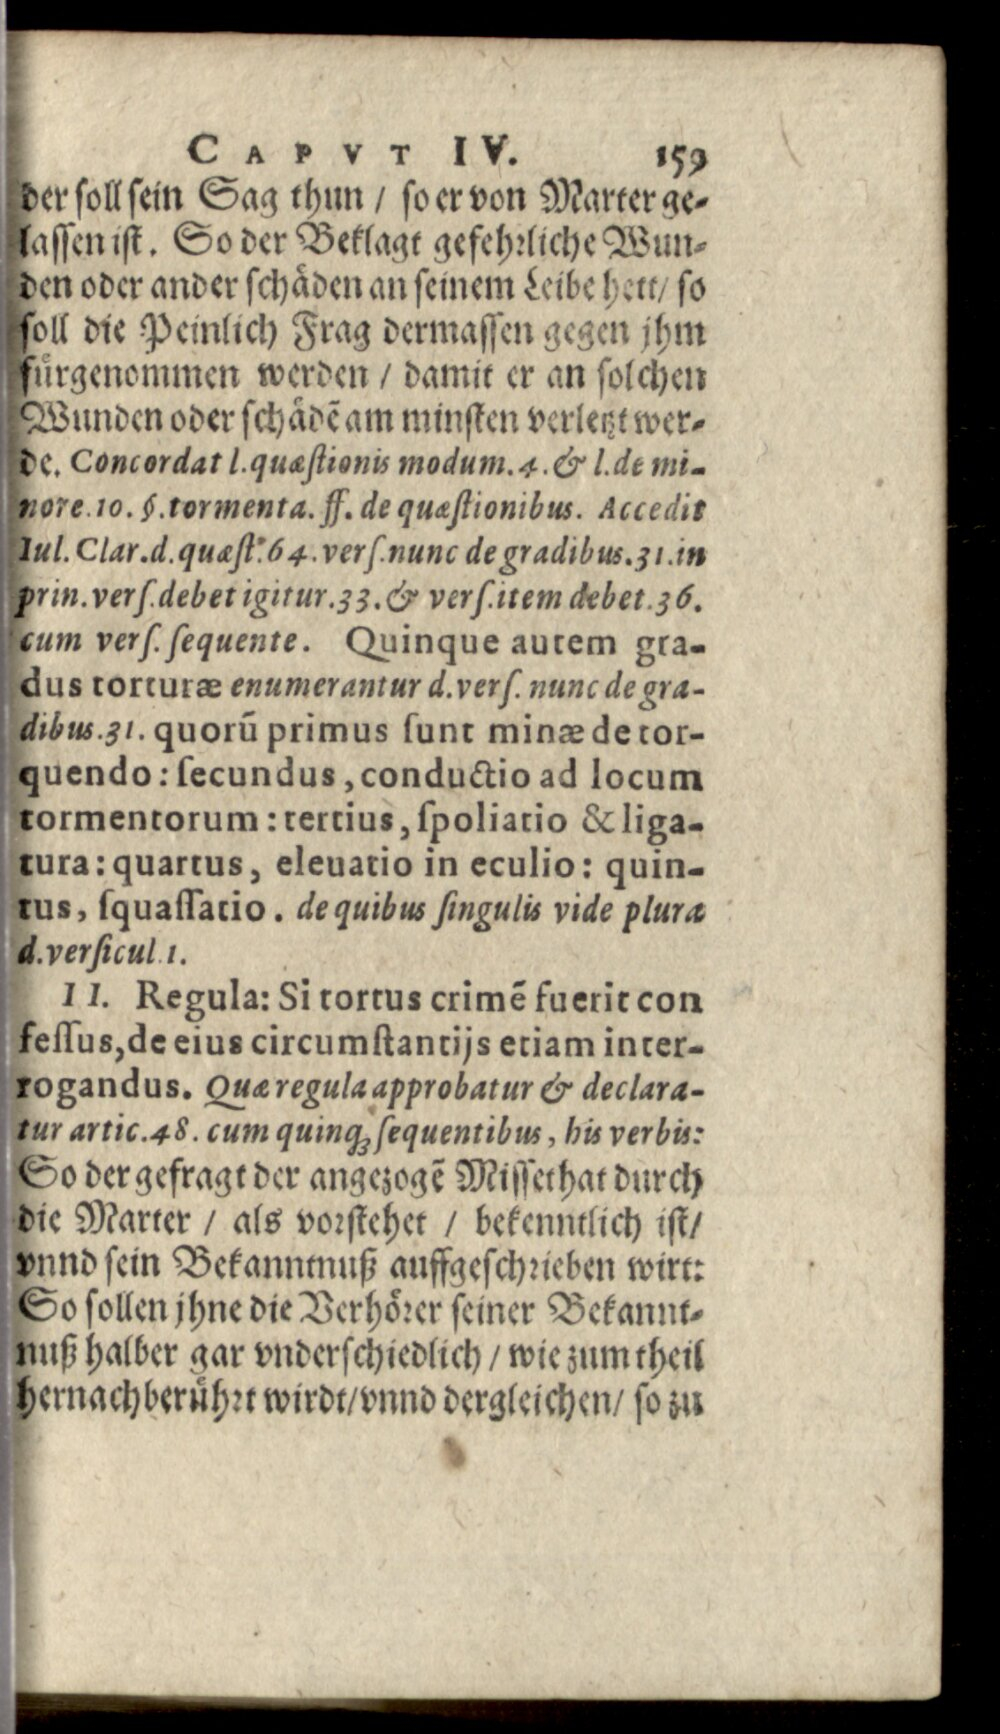 CAPVT IV. 159
der soll sein Sag thun / so er von Marter ge-
lassen ist. So der Beklagt gefehrliche Wun-
den oder ander schåden an seinem Leibe hett / so
soll die Peinlich Frag dermassen gegen jhm
fürgenommen werden / damit er an solchen
Wunden oder schådẽ am minsten verletzt wer-
de. Concordat l. quæſtionis modum. 4. & l. de mi-
nore. 10. §. tormenta. ff. de quæſtionibus. Accedit
Iul. Clar. d. quæſt. 64. verſ. nunc de gradibus. 31. in
prin. verſ. debet igitur. 33. & verſ. item debet. 36.
cum verſ. ſequente. Quinque autem gra-
dus torturæ enumerantur d. verſ. nunc de gra-
dibus. 31. quorũ primus ſunt minæ de tor-
quendo: ſecundus, conductio ad locum
tormentorum: tertius, ſpoliatio & liga-
tura: quartus, eleuatio in eculio: quin-
tus, ſquaſſatio. de quibus ſingulis vide plura
d. verſicul. 1.
II. Regula: Si tortus crimẽ fuerit con
feſſus, de eius circumſtantijs etiam inter-
rogandus. Quæ regula approbatur & declara-
tur artic. 48. cum quinqꝫ ſequentibus, his verbis:
So der gefragt der angezogẽ Missethat durch
die Marter / als vorstehet / bekenntlich ist /
vnnd sein Bekanntnuß auffgeschrieben wirt:
So sollen jhne die Verhörer seiner Bekannt-
nuß halber gar vnderschiedlich / wie zum theil
hernach berührt wirdt / vnnd dergleichen / so zu